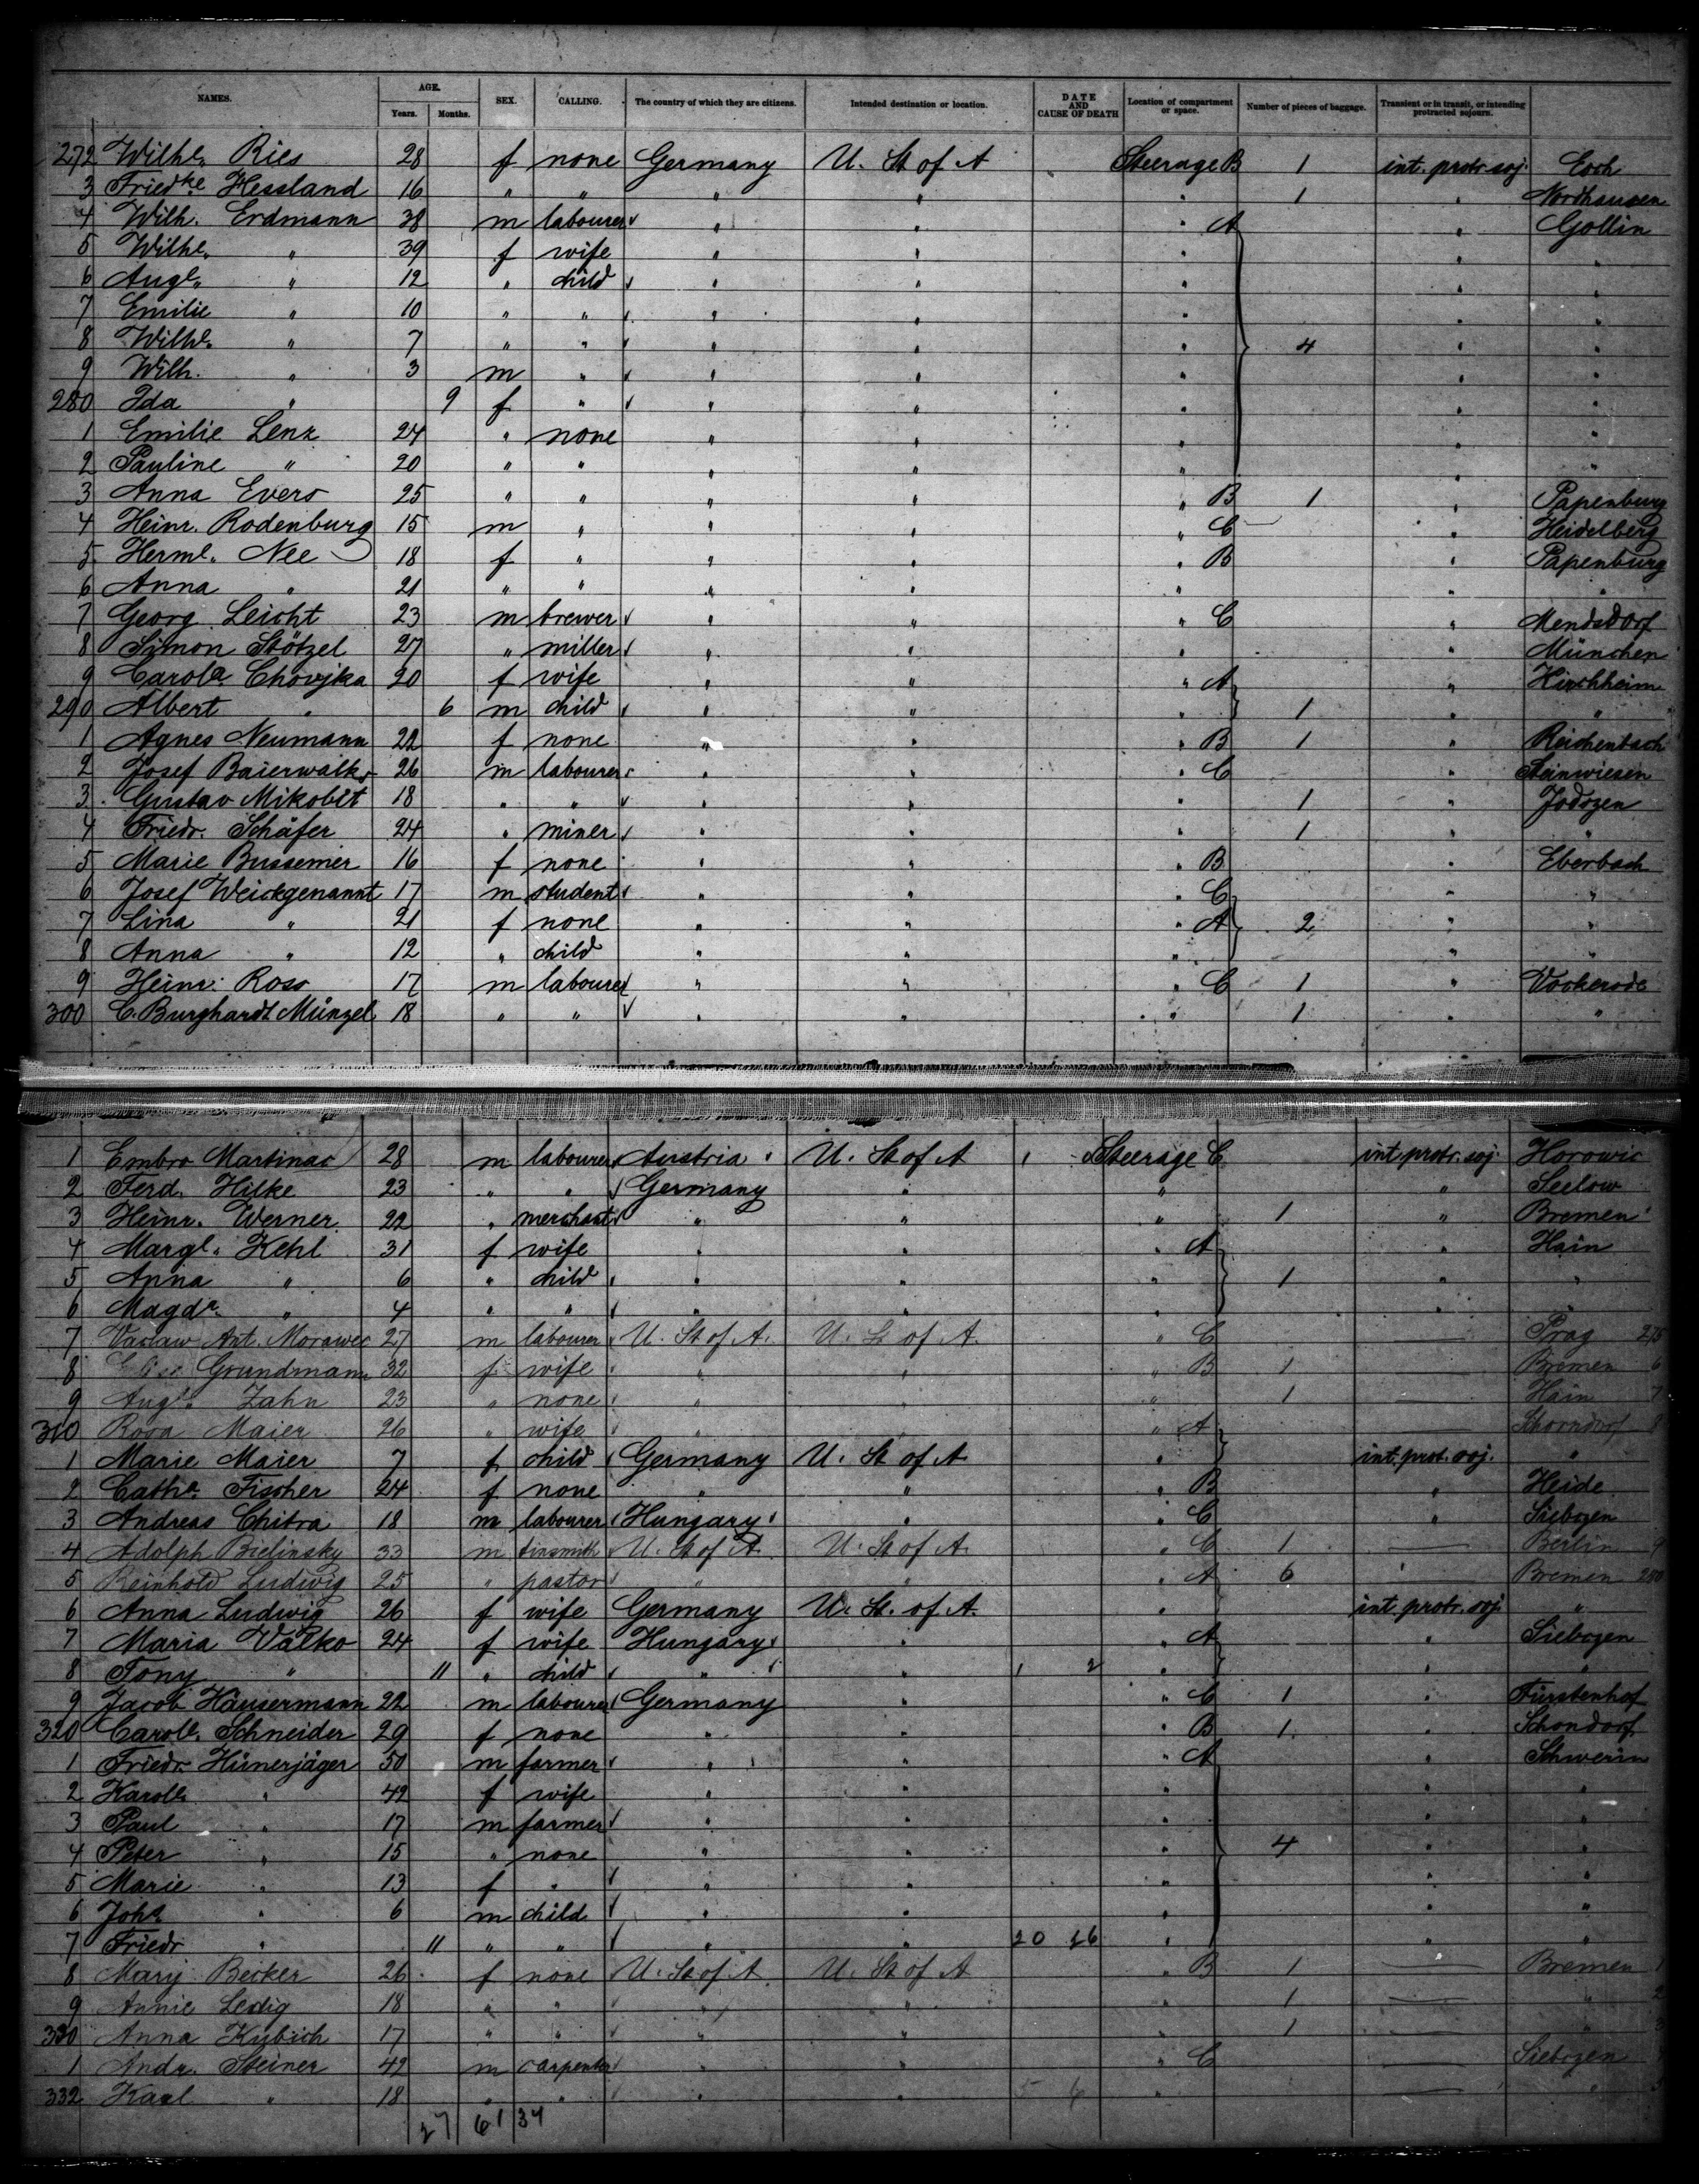 NAMES. AGE. Years. Months. SEX. CALLING. The country of which they are citizens. Intended destination or location. DATE AND CAUSE OF DEATH Location of compartment or space. Number of pieces of baggage. Transient or in transit, or intending protracted sojourn.
272 Wilhe. Ries 28 f none Germany U. St of A Steerage B 1 int. protr. soj. Esch
3 Friedke Hessland 16 " " " " " 1 " Nordhausen
4 Wilh. Erdmann 38 m labourer " " " A " Gollin
5 Wilhe. " 39 f wife " " " " "
6 Auge. " 12 " child " " " " "
7 Emilie " 10 " " " " " " "
8 Wilhe. " 7 " " " " " 4 " "
9 Wilh. " 3 m " " " " " "
280 Ida " 9 f " " " " " "
1 Emilie Lenz 24 " none " " " " "
2 Pauline " 20 " " " " " " "
3 Anna Evers 25 " " " " " B 1 " Papenburg
4 Heinr. Rodenburg 15 m " " " " C " Heidelberg
5 Herme. Nee 18 f " " " " B " Papenburg
6 Anna " 21 " " " " " " "
7 Georg Leicht 23 m brewer " " " C " Mendsdorf
8 Simon Stötzel 27 " miller " " " " München
9 Carola Chovjka 20 f wife " " " A " Hirchheim
290 Albert " 6 m child " " " 1 " "
1 Agnes Neumann 22 f none " " " B 1 " Reichenbach
2 Josef Baierwalks 26 m labourer " " " C " Steinwiesen
3 Gustav Mikobit 18 " " " " " 1 " Jodszen
4 Friedr. Schäfer 24 " miner " " " 1 " "
5 Marie Bussemer 16 f none " " " B " Eberbach
6 Josef Weickgenannt 17 m student " " " C " "
7 Lina " 21 f none " " " A 2 " "
8 Anna " 12 " child " " " " "
9 Heinr. Ross 17 m labourer " " " C 1 " Vockerode
300 C. Burghardt Münzel 18 " " " " " 1 " "
1 Embro Martinac 28 m labourer Austria U. St of A Steerage C int. protr. soj. Horowic
2 Ferd. Hilke 23 " " Germany " " " Seelow
3 Heinr. Werner 22 " merchant " " " 1 " Bremen
4 Margl. Kehl 31 f wife " " " A " Hain
5 Anna " 6 " child " " " 1 " "
6 Magda. " 4 " " " " " " "
7 Vaclaw Ant. Morawec 27 m labourer U. St of A. U. St of A. " C — Prag 275
8 Elise Grundmann 32 f wife " " " B 1 — Bremen 6
9 Augte. Zahn 23 " none " " " 1 — Hain 7
310 Rosa Maier 26 " wife " " " A — Schorndorf 8
1 Marie Maier 7 f child Germany U. St of A " int. prot. soj. "
2 Cathe. Fischer 24 f none " " " B " Heide
3 Andreas Chitra 18 m labourer Hungary " " C " Siebozen
4 Adolph Bielinsky 33 m tinsmith U. St of A. U. St of A. " C 1 — Berlin 9
5 Reinhold Ludwig 25 " pastor " " " A 6 — Bremen 280
6 Anna Ludwig 26 f wife Germany U. St. of A. " int. protr. soj. "
7 Maria Valko 24 f wife Hungary " " A " Siebozen
8 Tony " 11 " child " " 1 2 " " "
9 Jacob Häusermann 22 m labourer Germany " " C 1 " Fürstenhof
320 Carole. Schneider 29 f none " " " B 1 " Schondorf
1 Friedr. Hünerjäger 50 m farmer " " " A " Schwerin
2 Karole. " 42 f wife " " " " "
3 Paul " 17 m farmer " " " " "
4 Peter " 15 " none " " " 4 " "
5 Marie " 13 f " " " " " "
6 Johs. " 6 m child " " " " "
7 Friedr. " 11 " " " " 20 26 " " "
8 Mary Becker 26 f none U. St of A. U. St of A " B 1 — Bremen 1
9 Annie Ledig 18 " " " " " 1 — " 2
330 Anna Kubich 17 " " " " " 1 — " 3
1 Andr. Steiner 42 m carpenter " " " C — Siebozen
332 Karl " 18 " " " " 5 6 " — " 5
27 61 34